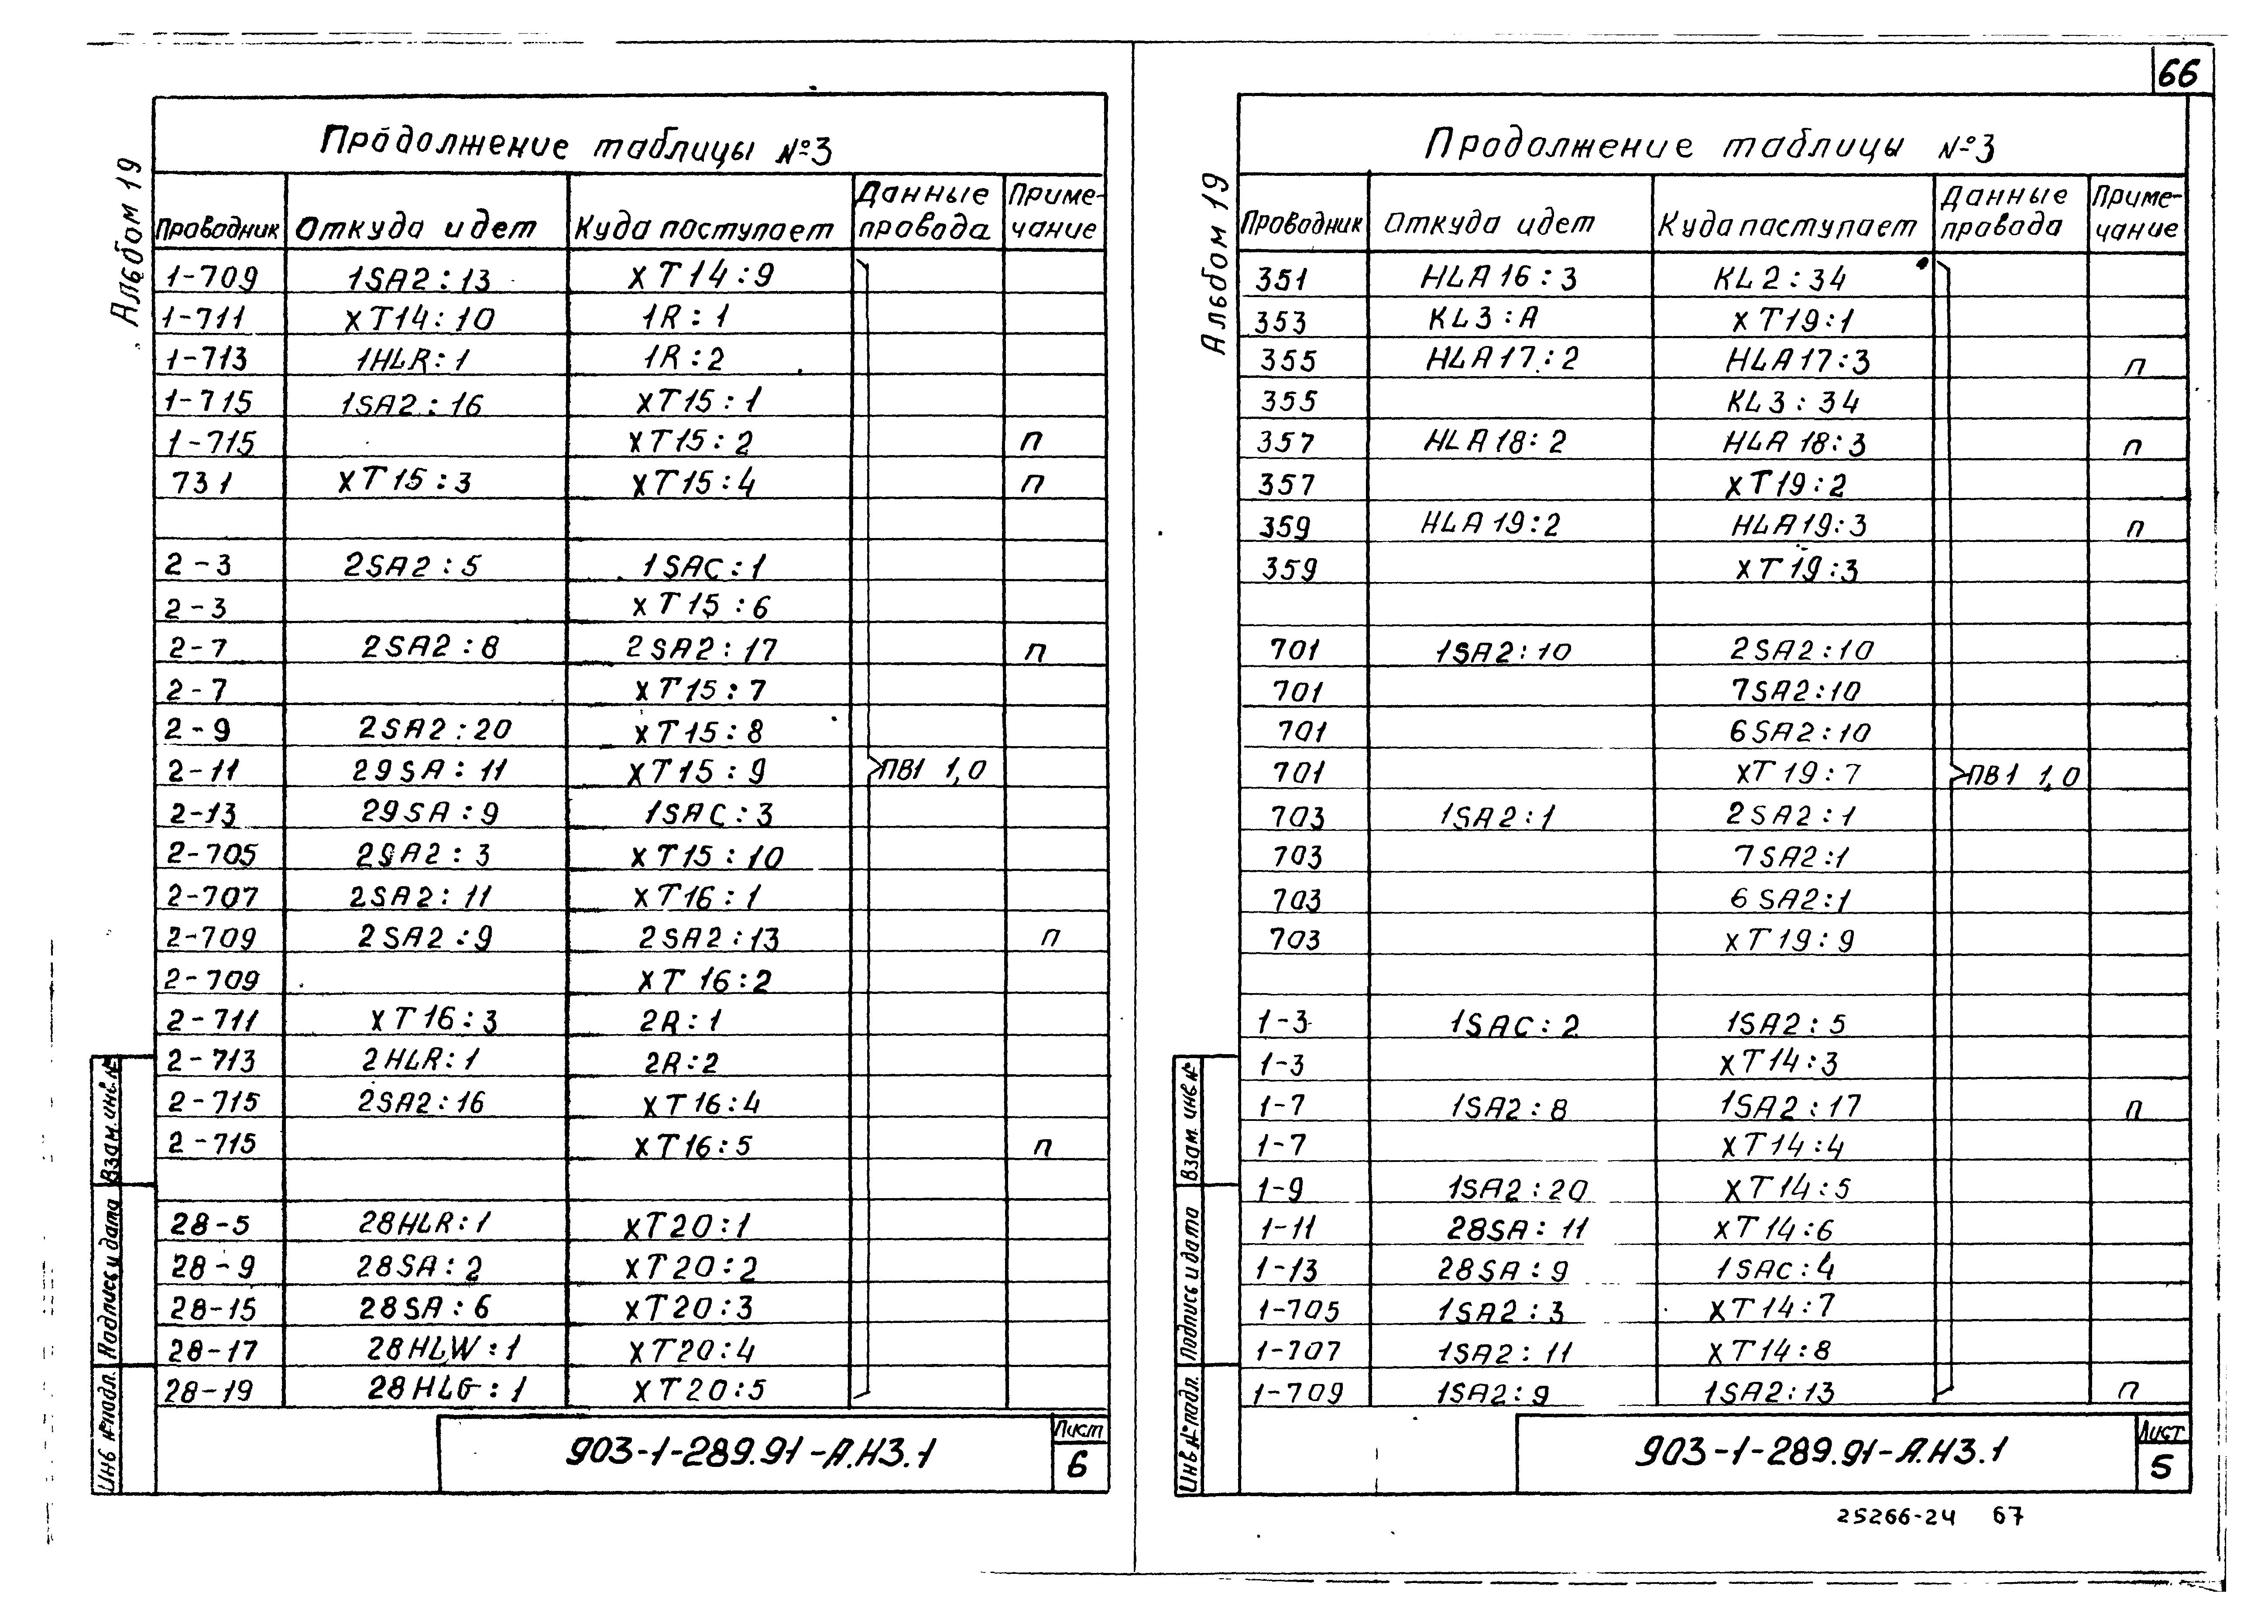 66
Альбом 19
Продолжение таблицы №3
Проводник Откуда идет Куда поступает Данные провода Приме-чание
1-709 1SA2:13 XT14:9
1-711 XT14:10 1R:1
1-713 1HLR:1 1R:2
1-715 1SA2:16 XT15:1
1-715 XT15:2 п
731 XT15:3 XT15:4 п
2-3 2SA2:5 1SAC:1
2-3 XT15:6
2-7 2SA2:8 2SA2:17 п
2-7 XT15:7
2-9 2SA2:20 XT15:8
2-11 29SA:11 XT15:9 ПВ1 1,0
2-13 29SA:9 1SAC:3
2-705 2SA2:3 XT15:10
2-707 2SA2:11 XT16:1
2-709 2SA2:9 2SA2:13 п
2-709 XT16:2
2-711 XT16:3 2R:1
2-713 2HLR:1 2R:2
2-715 2SA2:16 XT16:4
2-715 XT16:5 п
28-5 28HLR:1 XT20:1
28-9 28SA:2 XT20:2
28-15 28SA:6 XT20:3
28-17 28HLW:1 XT20:4
28-19 28HLG:1 XT20:5
Взам. инв. №
Подпись и дата
Инв № подл.
903-1-289.91-А.НЗ.1
Лист
6
Альбом 19
Продолжение таблицы №3
Проводник Откуда идет Куда поступает Данные провода Приме-чание
351 HLA16:3 KL2:34
353 KL3:A XT19:1
355 HLA17:2 HLA17:3 п
355 KL3:34
357 HLA18:2 HLA18:3 п
357 XT19:2
359 HLA19:2 HLA19:3 п
359 XT19:3
701 1SA2:10 2SA2:10
701 7SA2:10
701 6SA2:10
701 XT19:7 ПВ1 1,0
703 1SA2:1 2SA2:1
703 7SA2:1
703 6SA2:1
703 XT19:9
1-3 1SAC:2 1SA2:5
1-3 XT14:3
1-7 1SA2:8 1SA2:17 п
1-7 XT14:4
1-9 1SA2:20 XT14:5
1-11 28SA:11 XT14:6
1-13 28SA:9 1SAC:4
1-705 1SA2:3 XT14:7
1-707 1SA2:11 XT14:8
1-709 1SA2:9 1SA2:13 п
Взам. инв №
Подпись и дата
Инв № подл.
903-1-289.91-А.НЗ.1
Лист
5
25266-24 67